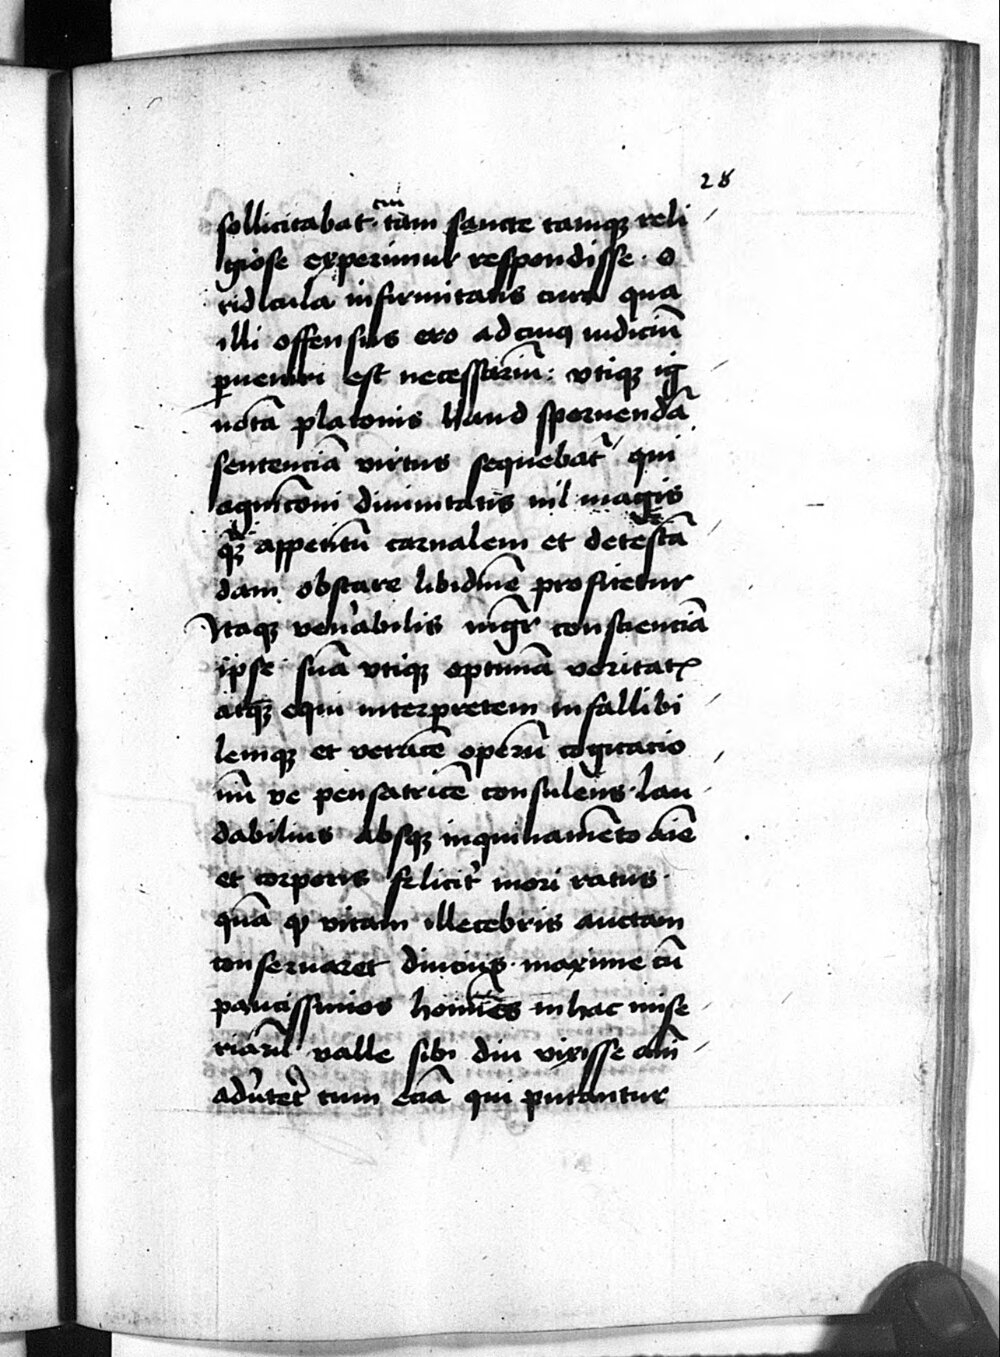 28
cui
sollicitabat · tam sancte tamq₃ reli
giose experimur respondisse · o
ridicula infirmitatis cura qua
illi offensus ero ad cuiꝯ iudiciū
ꝑueniri est necessariū : vtiq₃ ig
notā platonis haud spernendā
sentenciā virtus sequebat᷑ qui
agnicōni diuinitatis nil magis
appetitū carnalem et detestā
dam obstare libidinē profitetur
Itaq₃ ven̄abilis mgr̄ conscienciā
ipse suā vtiq₃ optimā veritatꝭ
atq₃ equi interpretem infallibi
lemq₃ et veracē operū cogitacio
nū ve pensatricē consulens · lau
dabilius absq₃ inquinamēto aīe
et corporis felicit̄ mori ratus ·
quā ꝙ vitam illecebris auctam
conseruaret diucius · maxime cū
paucissimos homīes in hac mise
riarū valle sibi diu vixisse
tum eciā qui putantur